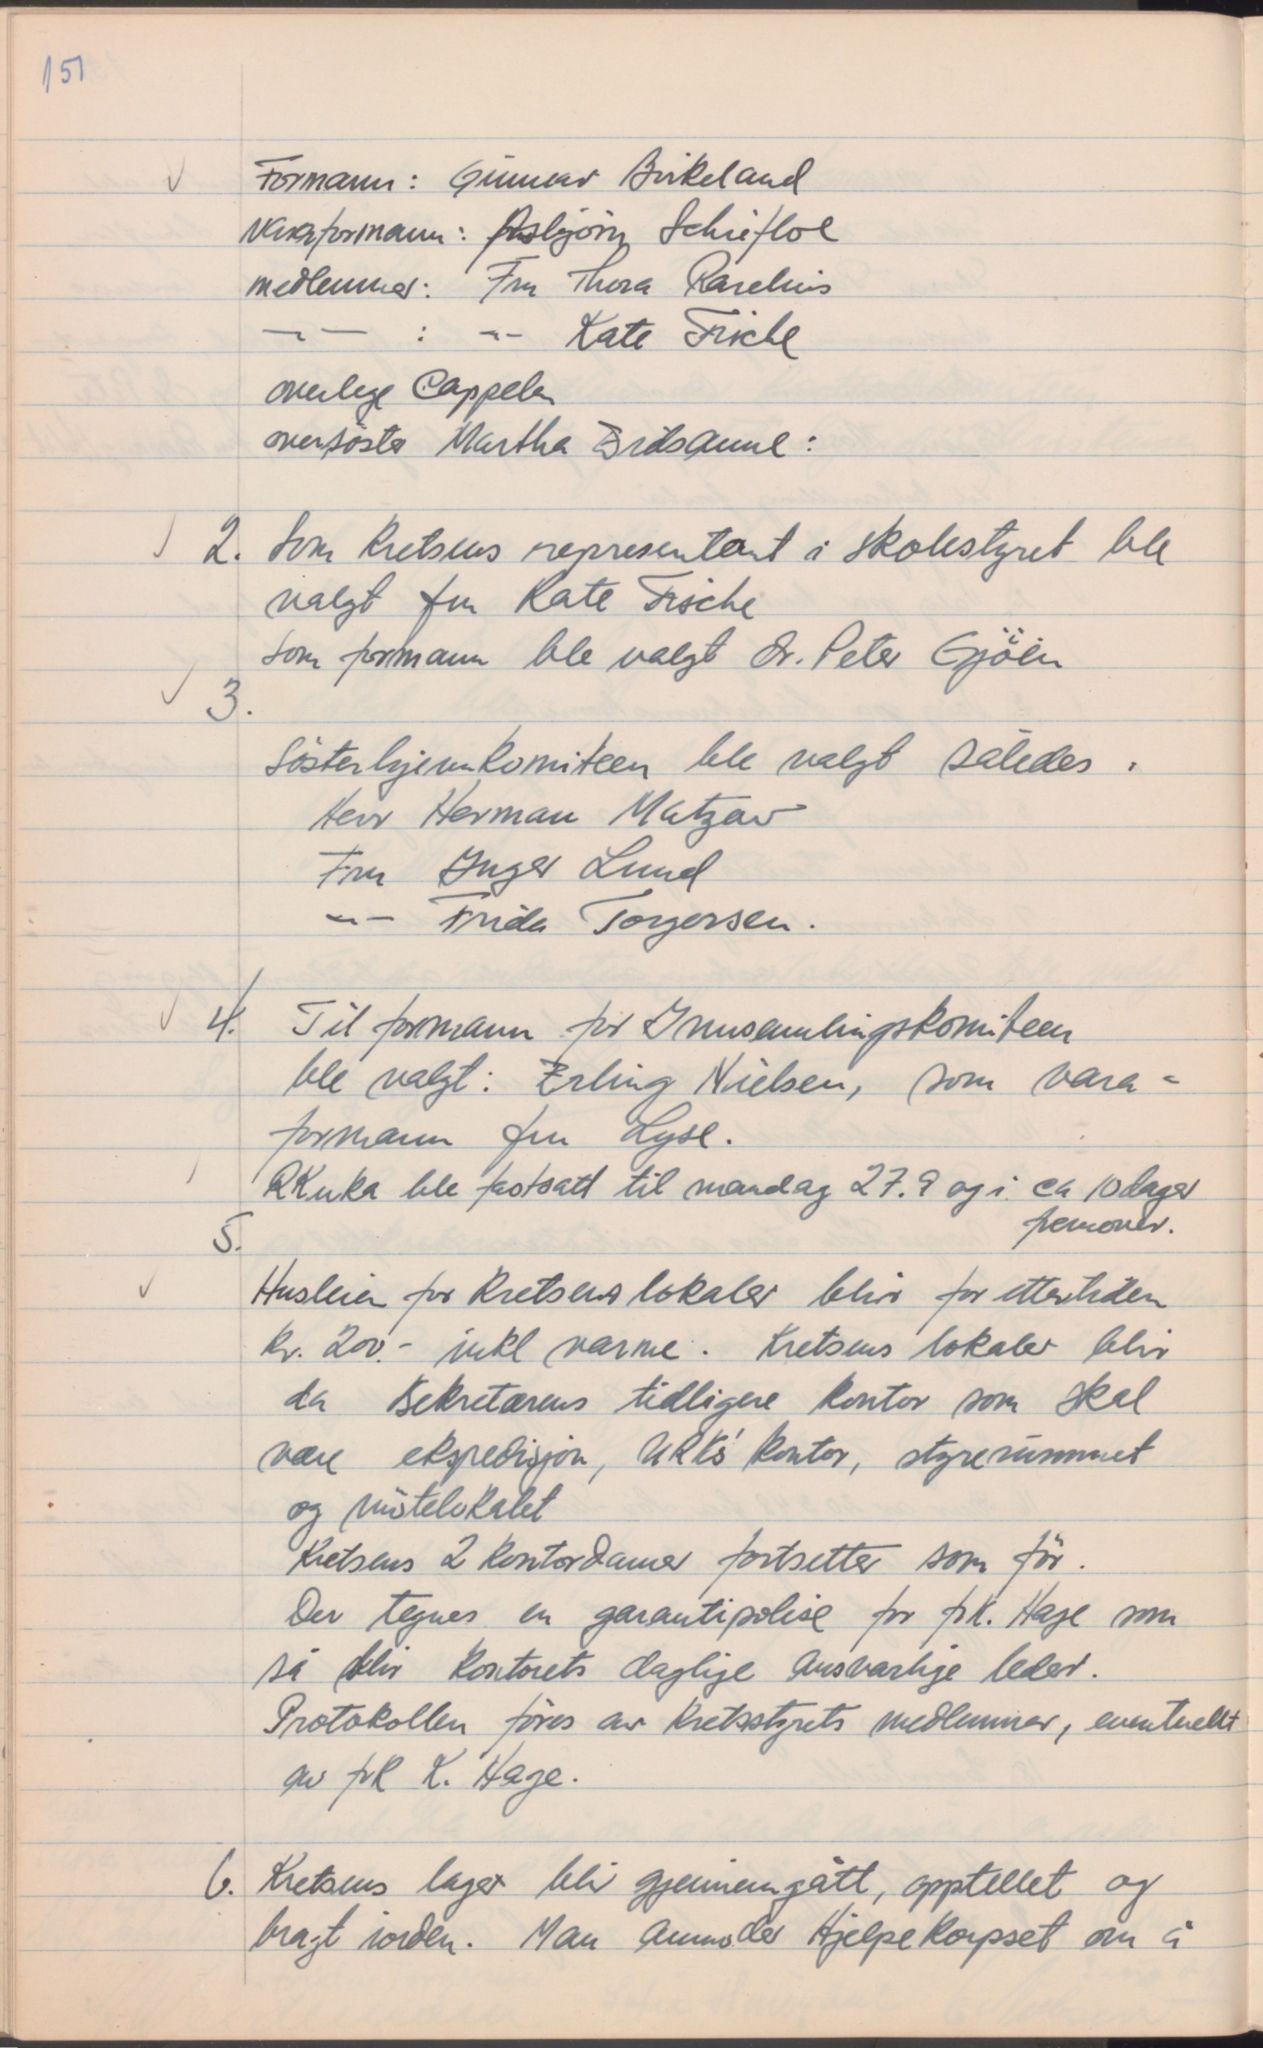 151
Formann: Gunnar Birkeland
Varaformann: Asbjörn Schiefloe
medlemmer: Fru Thora Racelius
—"— : -"- Kate Fische
overlege Cappelen
oversöster Martha Eidsaune:
2. Som kretsens representant i skolestyret ble
valgt fru Kate Fische
Som formann ble valgt dr. Peter Gjöen
3.
Sösterhjemkomiteen ble valgt således.
Herr Herman Matzow
Fru Inger Lund
-"- Frida Torgersen.
4. Til formann for Innsamlingskomiteen
ble valgt: Erling Nielsen, som vara-
formann fru Lyse.
RKuka ble fastsatt til mandag 27.9 og i ca 10 dager
fremover.
5.
Husleien for kretsens lokaler blir for ettertiden
kr. 200.- inkl varme. Kretsens lokaler blir
da Sekretærens tidligere kontor som skal
være ekspedisjon, URKs' kontor, styrerummet
og mötelokalet
Kretsens 2 kontordamer fortsetter som för.
Der tegnes en garantipolise for frk. Hage som
så blir kontorets daglige ansvarlige leder.
Protokollen föres av kretsstyrets medlemmer, eventuellt
av frk K. Hage.
6. Kretsens lager blir gjennemgått, opptellet og
bragt iorden. Man anmoder Hjelpekorpset om å